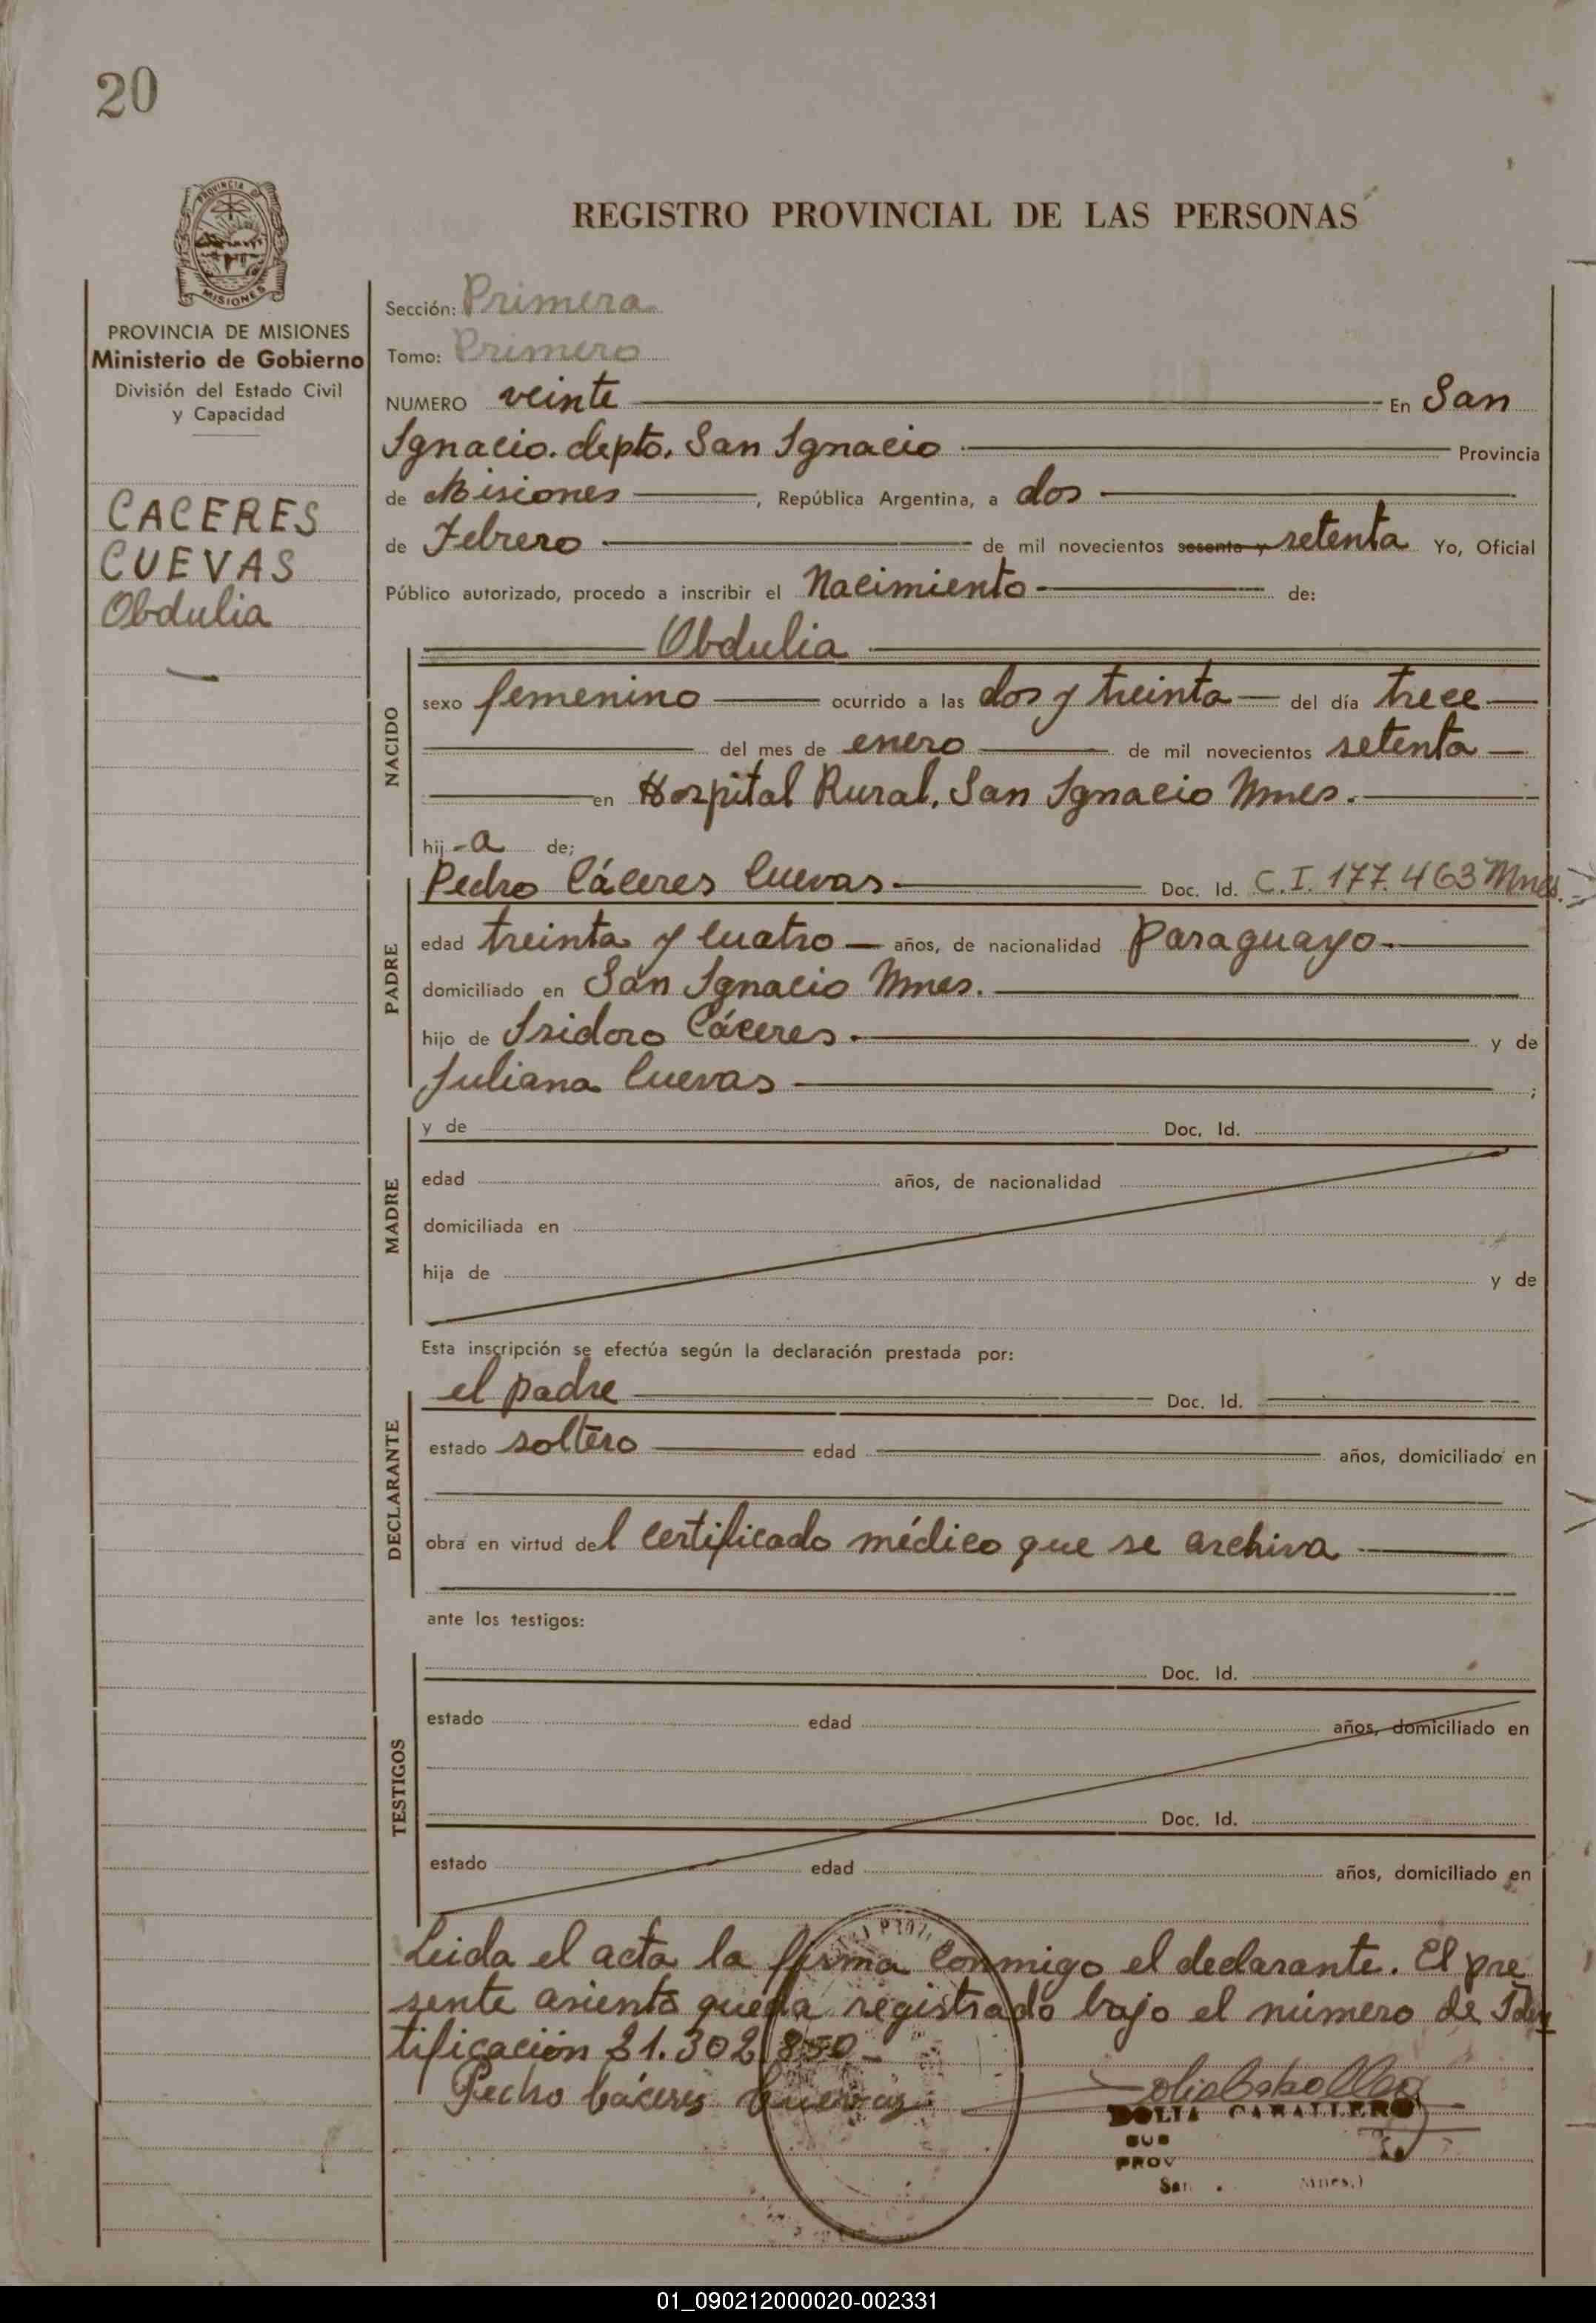 20
PROVINCIA DE
MISIONES
PROVINCIA DE MISIONES
Ministerio de Gobierno
División del Estado Civil
y Capacidad
CACERES
CUEVAS
Obdulia
REGISTRO PROVINCIAL DE LAS PERSONAS
Sección: Primera
Tomo: Primero
NUMERO veinte En San
Ignacio. depto. San Ignacio Provincia
de Misiones, República Argentina, a dos
de Febrero de mil novecientos sesenta y setenta Yo, Oficial
Público autorizado, procedo a inscribir el Nacimiento de:
Obdulia
NACIDO
sexo femenino ocurrido a las dos y treinta del día trece
del mes de enero de mil novecientos setenta
en Hospital Rural, San Ignacio Mnes.
hij-a de;
PADRE
Pedro Cáceres Cuevas Doc. Id. C.I. 177.463 Mnes.
edad treinta y cuatro años, de nacionalidad Paraguayo
domiciliado en San Ignacio Mnes.
hijo de Isidoro Cáceres. y de
Juliana Cuevas ;
MADRE
y de Doc. Id.
edad años, de nacionalidad
domiciliada en
hija de y de
Esta inscripción se efectúa según la declaración prestada por:
DECLARANTE
el padre Doc. Id.
estado soltero edad años, domiciliado en
obra en virtud del certificado médico que se archiva
ante los testigos:
TESTIGOS
Doc. Id.
estado edad años, domiciliado en
Doc. Id.
estado edad años, domiciliado en
Leida el acta la firma conmigo el declarante. El pre
sente asiento queda registrado bajo el número de Iden
tificación 21.302.850
Pedro Cáceres Cuevas
CABALLERO
SUB
PROV
San Mnes.)
01_090212000020-002331